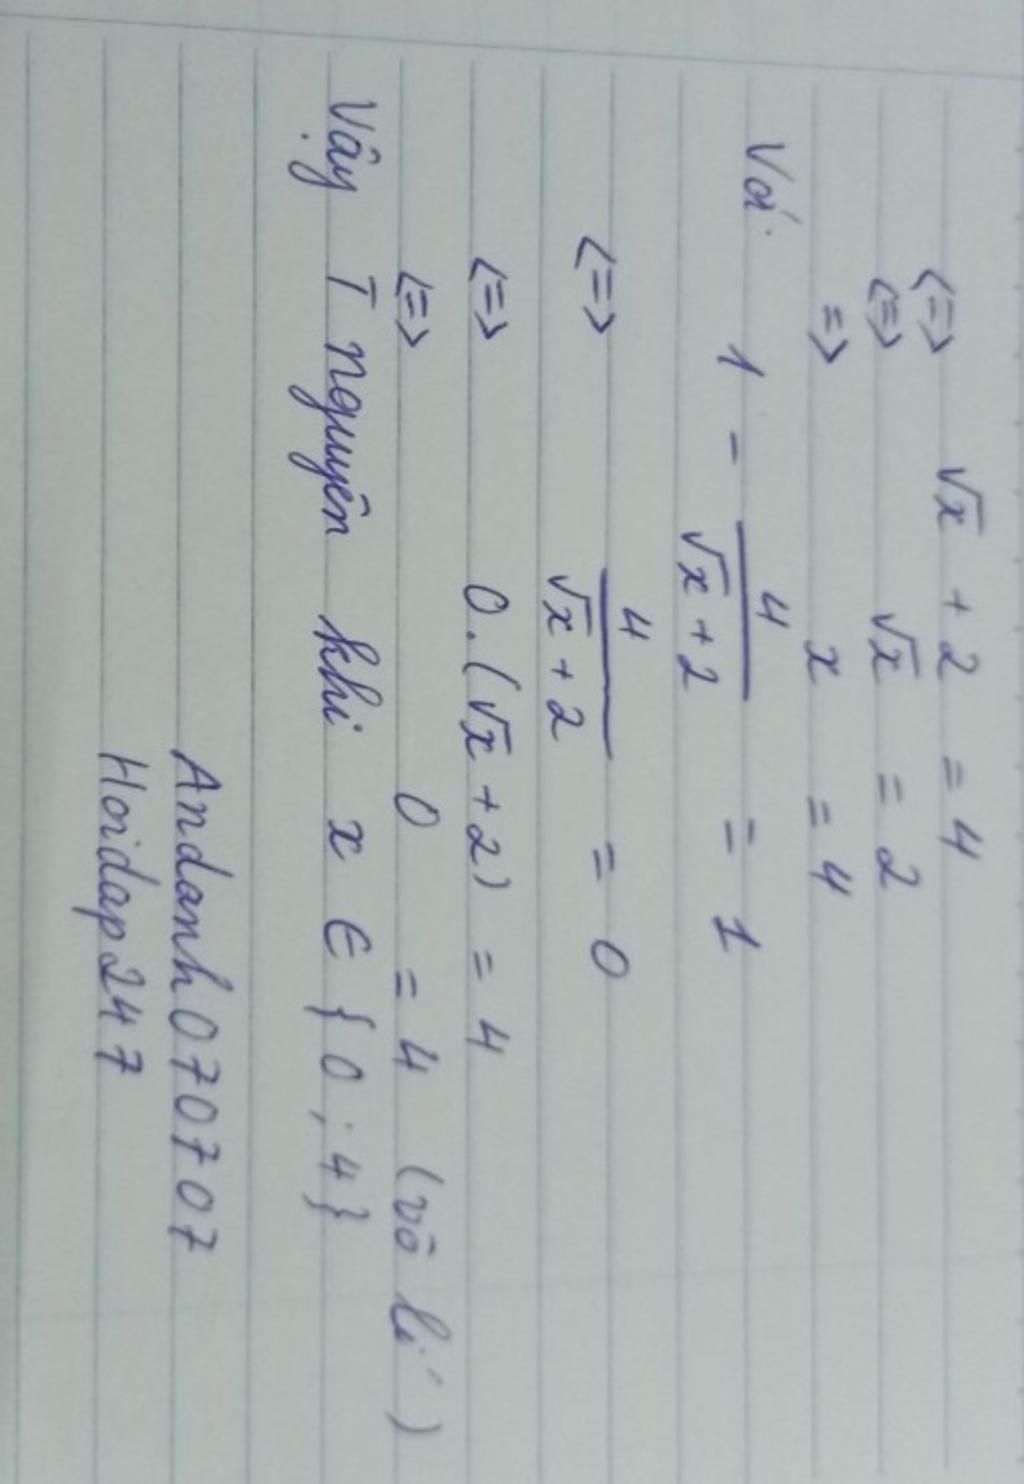 <=> √x + 2 = 4
<=> √x = 2
=> x = 4
Với 1 - 4/(√x + 2) = 1
<=> 4/(√x + 2) = 0
<=> 0.(√x + 2) = 4
<=> 0 = 4 (vô lí)
Vậy T nguyên khi x ∈ {0 ; 4}
Andanh070707
Hoidap247